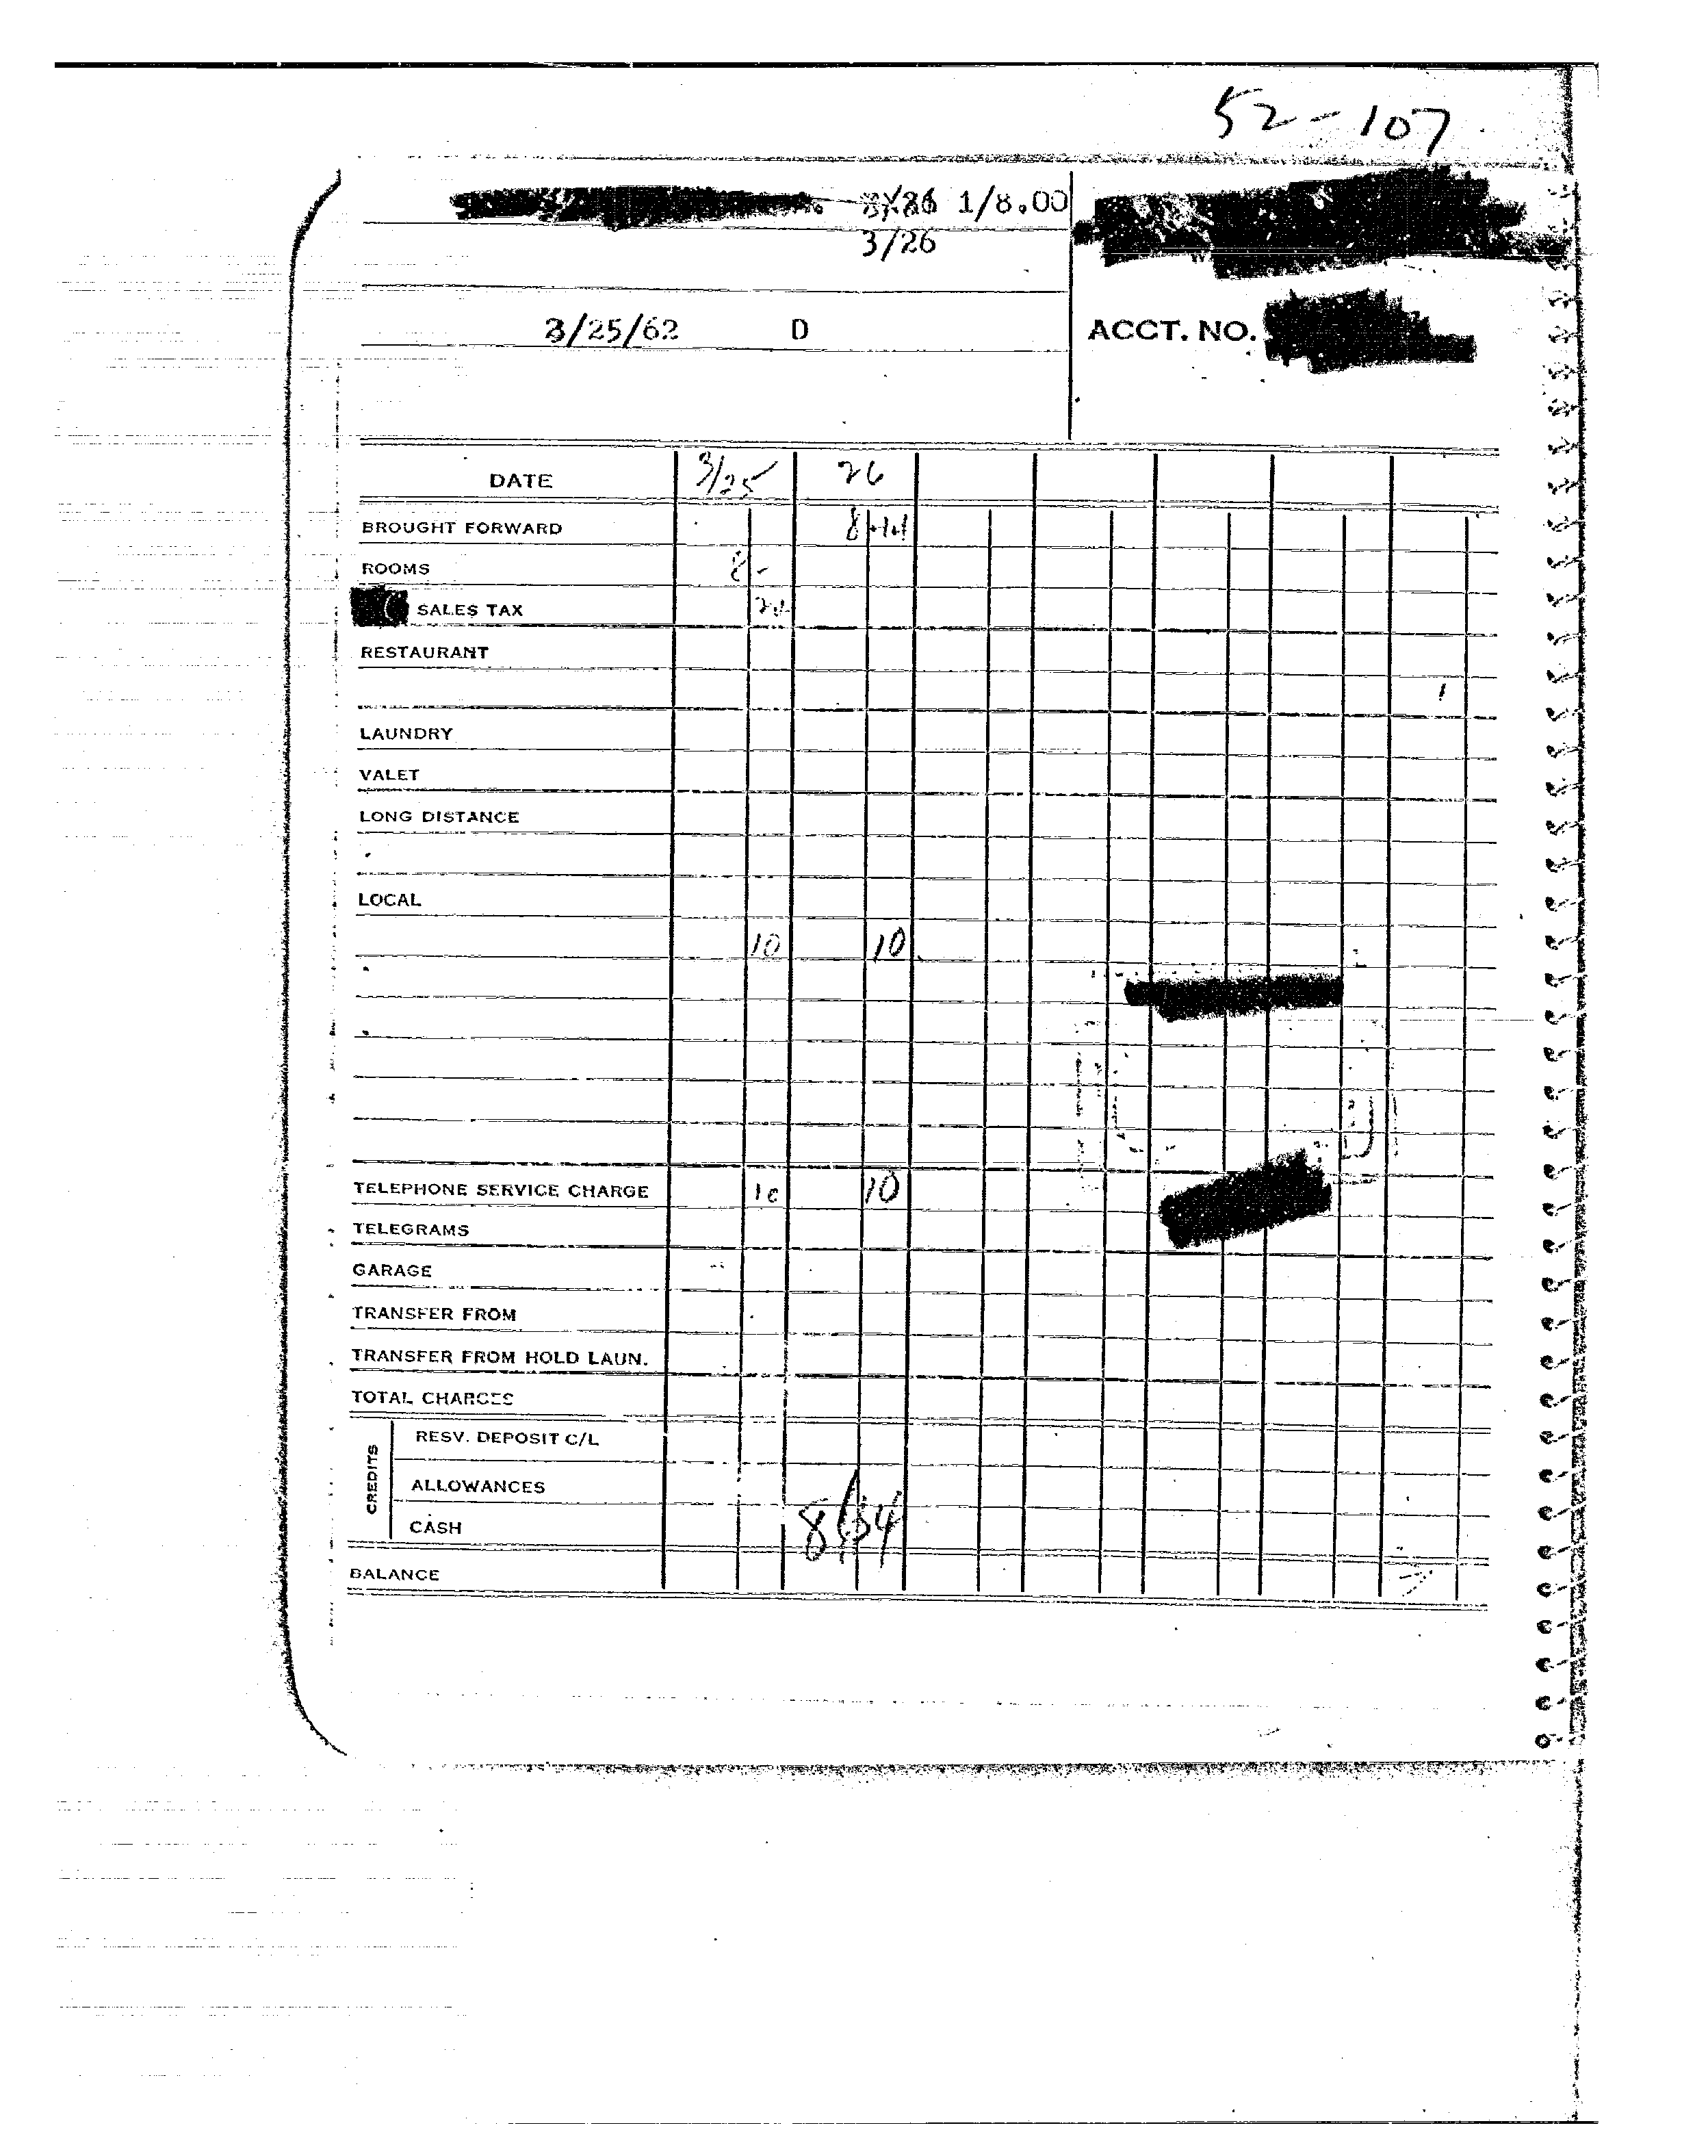 52-107
1/8.00
3/26
3/25/62 D
ACCT. NO.
DATE 3/25 26
BROUGHT FORWARD 8 44
ROOMS 8 -
SALES TAX
RESTAURANT
LAUNDRY
VALET
LONG DISTANCE
LOCAL
10 10
TELEPHONE SERVICE CHARGE 10 10
TELEGRAMS
GARAGE
TRANSFER FROM
TRANSFER FROM HOLD LAUN.
TOTAL CHARGES
CREDITS
RESV. DEPOSIT C/L
ALLOWANCES
CASH 8 64
BALANCE